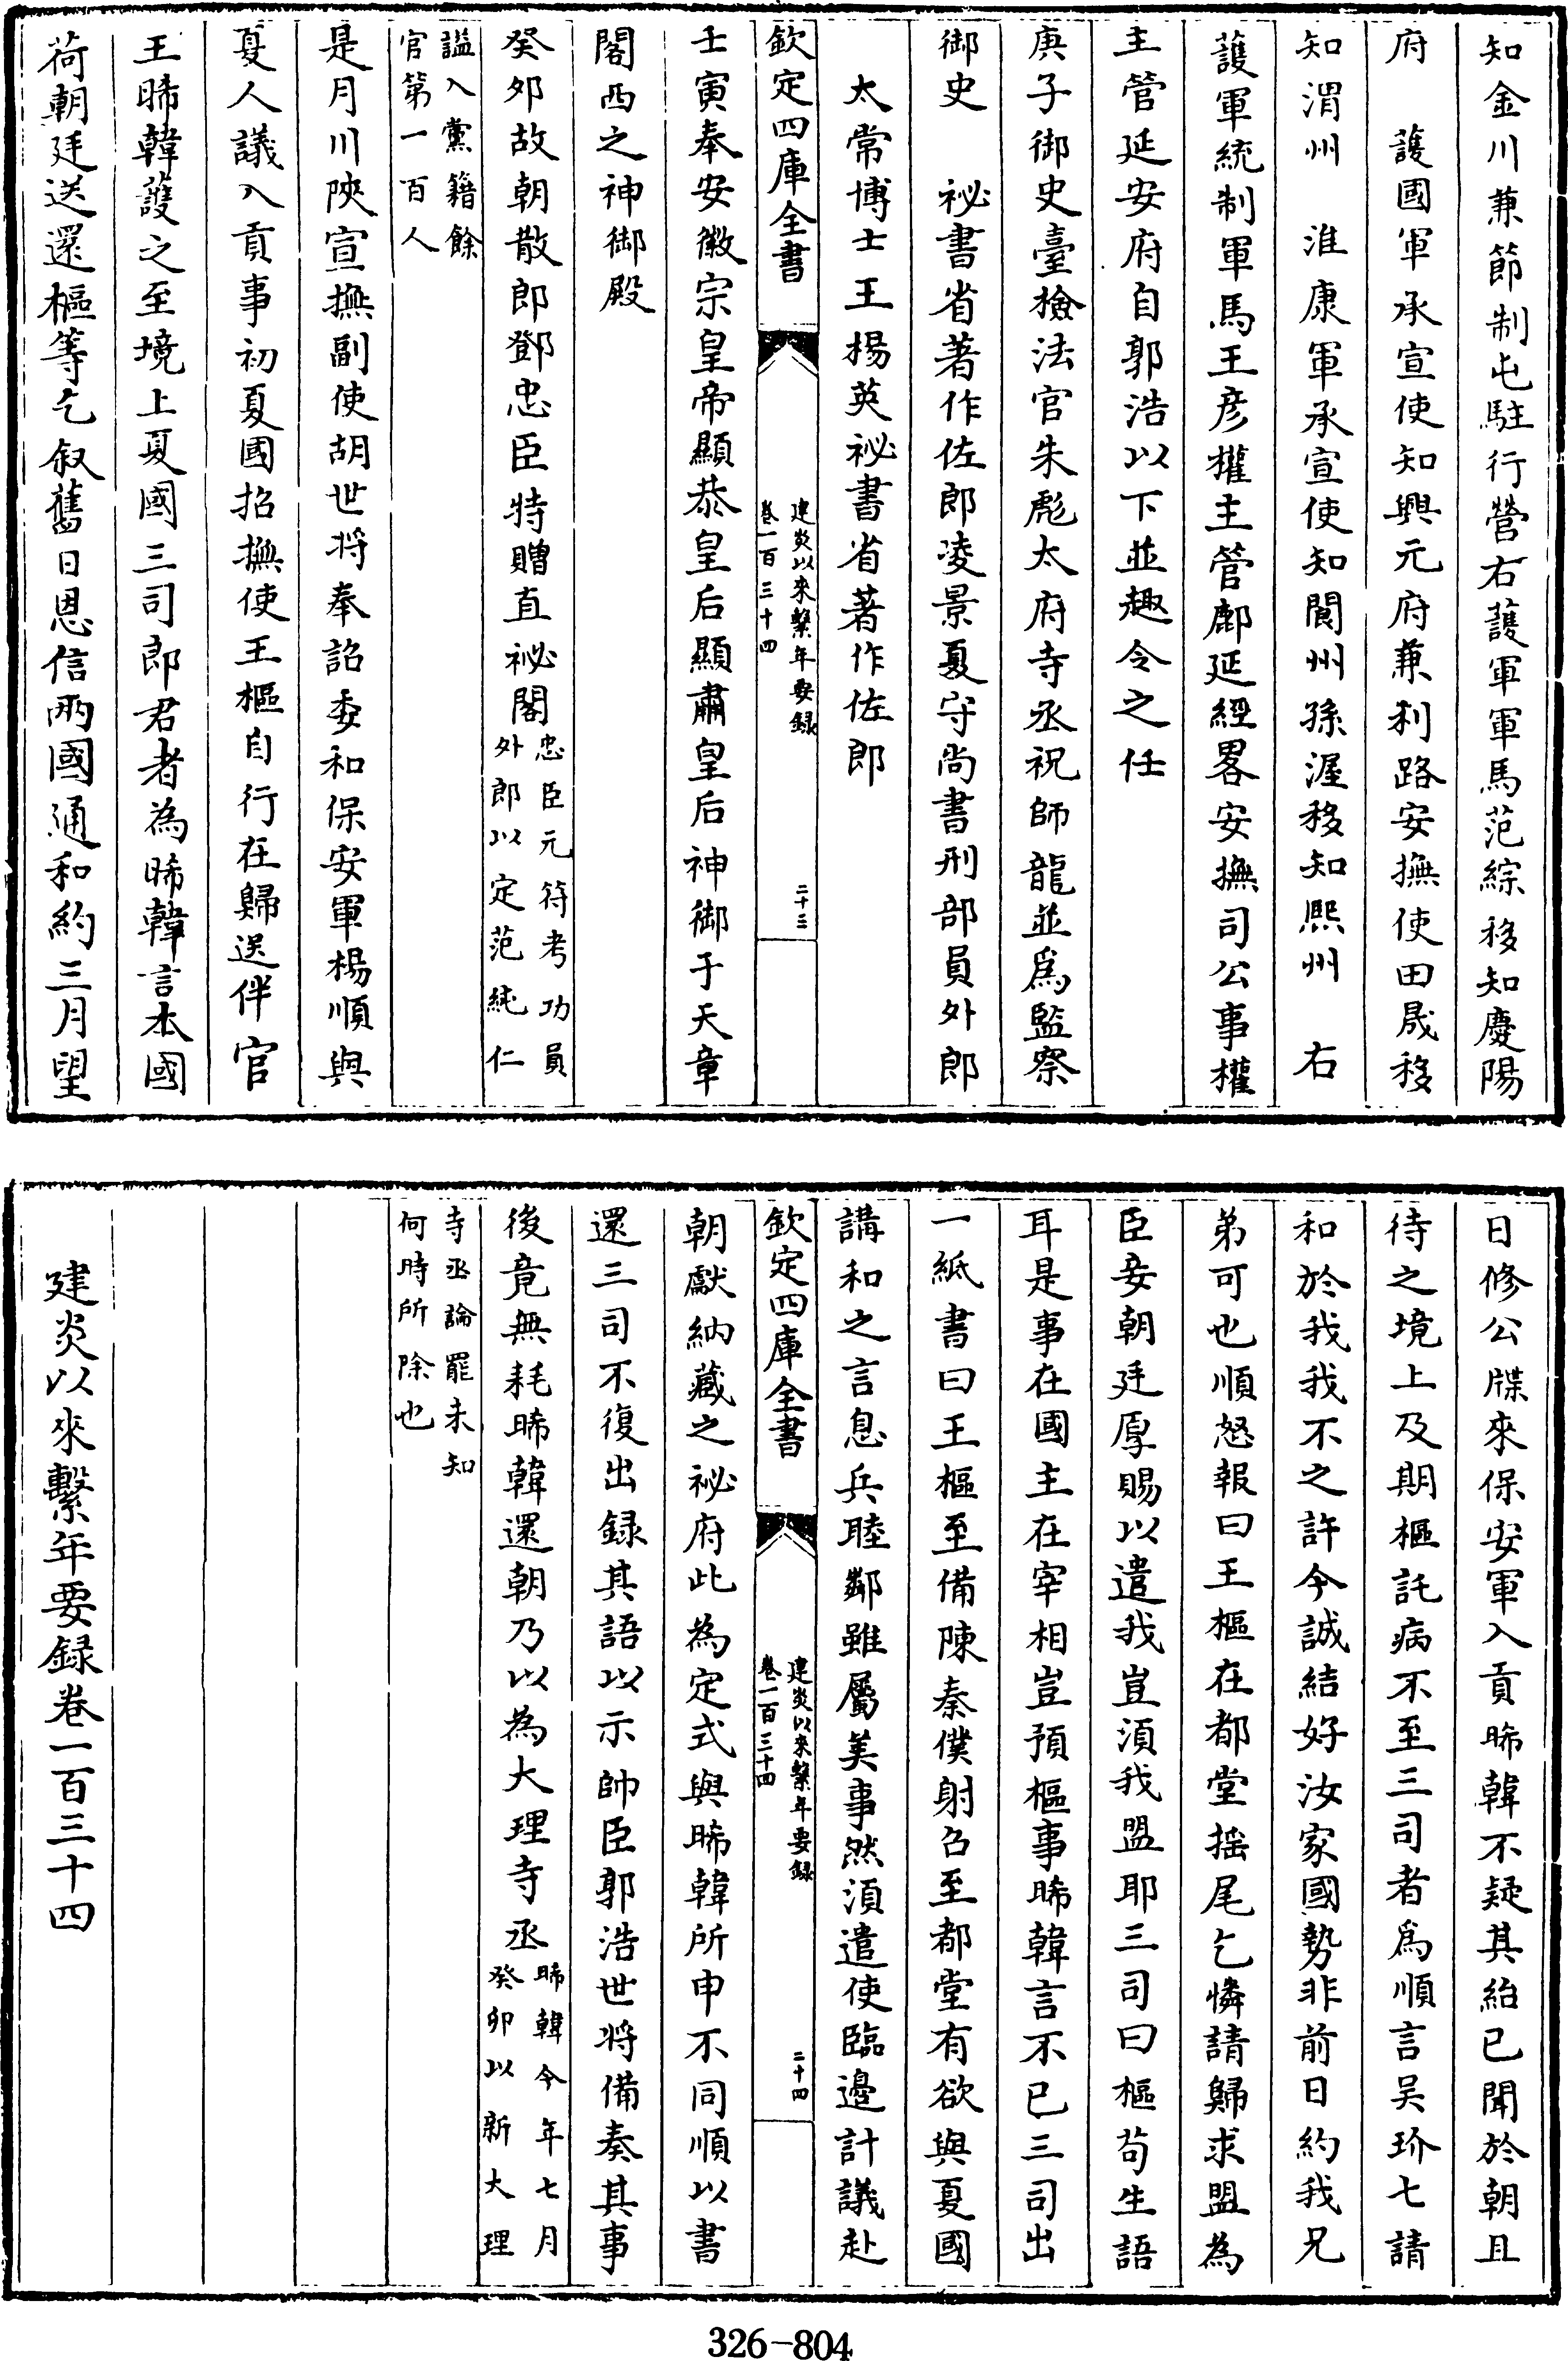 知金川兼節制屯駐行營右護軍軍馬范綜移知慶陽
府　護國軍承宣使知興元府兼利路安撫使田晟移
知渭州　淮康軍承宣使知閬州孫渥移知熙州　右
護軍統制軍馬王彦權主管鄜延經畧安撫司公事權
主管延安府自郭浩以下並趣令之任
庚子御史臺檢法官朱彪太府寺丞祝師龍並爲監察
御史　祕書省著作佐郎凌景夏守尚書刑部員外郎
太常博士王楊英祕書省著作佐郎
欽定四庫全書
建炎以來繫年要録
卷一百三十四
二十三
壬寅奉安徽宗皇帝顯恭皇后顯肅皇后神御于天章
閣西之神御殿
癸卯故朝散郎鄧忠臣特贈直祕閣忠臣元符考功員
外郎以定范純仁
諡入黨籍餘
官第一百人
是月川陝宣撫副使胡世将奉詔委和保安軍楊順與
夏人議入貢事初夏國招撫使王樞自行在歸送伴官
王晞韓護之至境上夏國三司郎君者為晞韓言本國
荷朝廷送還樞等乞叙舊日恩信兩國通和約三月望
日修公牒來保安軍入貢晞韓不疑其紿已聞於朝且
待之境上及期樞託病不至三司者爲順言吴玠七請
和於我我不之許今誠結好汝家國勢非前日約我兄
弟可也順怒報曰王樞在都堂揺尾乞憐請歸求盟為
臣妾朝廷厚賜以遣我豈湏我盟耶三司曰樞苟生語
耳是事在國主在宰相豈預樞事晞韓言不已三司出
一紙書曰王樞至備陳秦僕射召至都堂有欲與夏國
講和之言息兵睦鄰雖屬美事然湏遣使臨邊計議赴
欽定四庫全書
建炎以來繫年要録
卷一百三十四
二十四
朝獻納藏之祕府此為定式與晞韓所申不同順以書
還三司不復出録其語以示帥臣郭浩世将備奏其事
後竟無耗晞韓還朝乃以為大理寺丞晞韓今年七月
癸卯以新大理
寺丞論罷未知
何時所除也
建炎以來繫年要録卷一百三十四
326-804